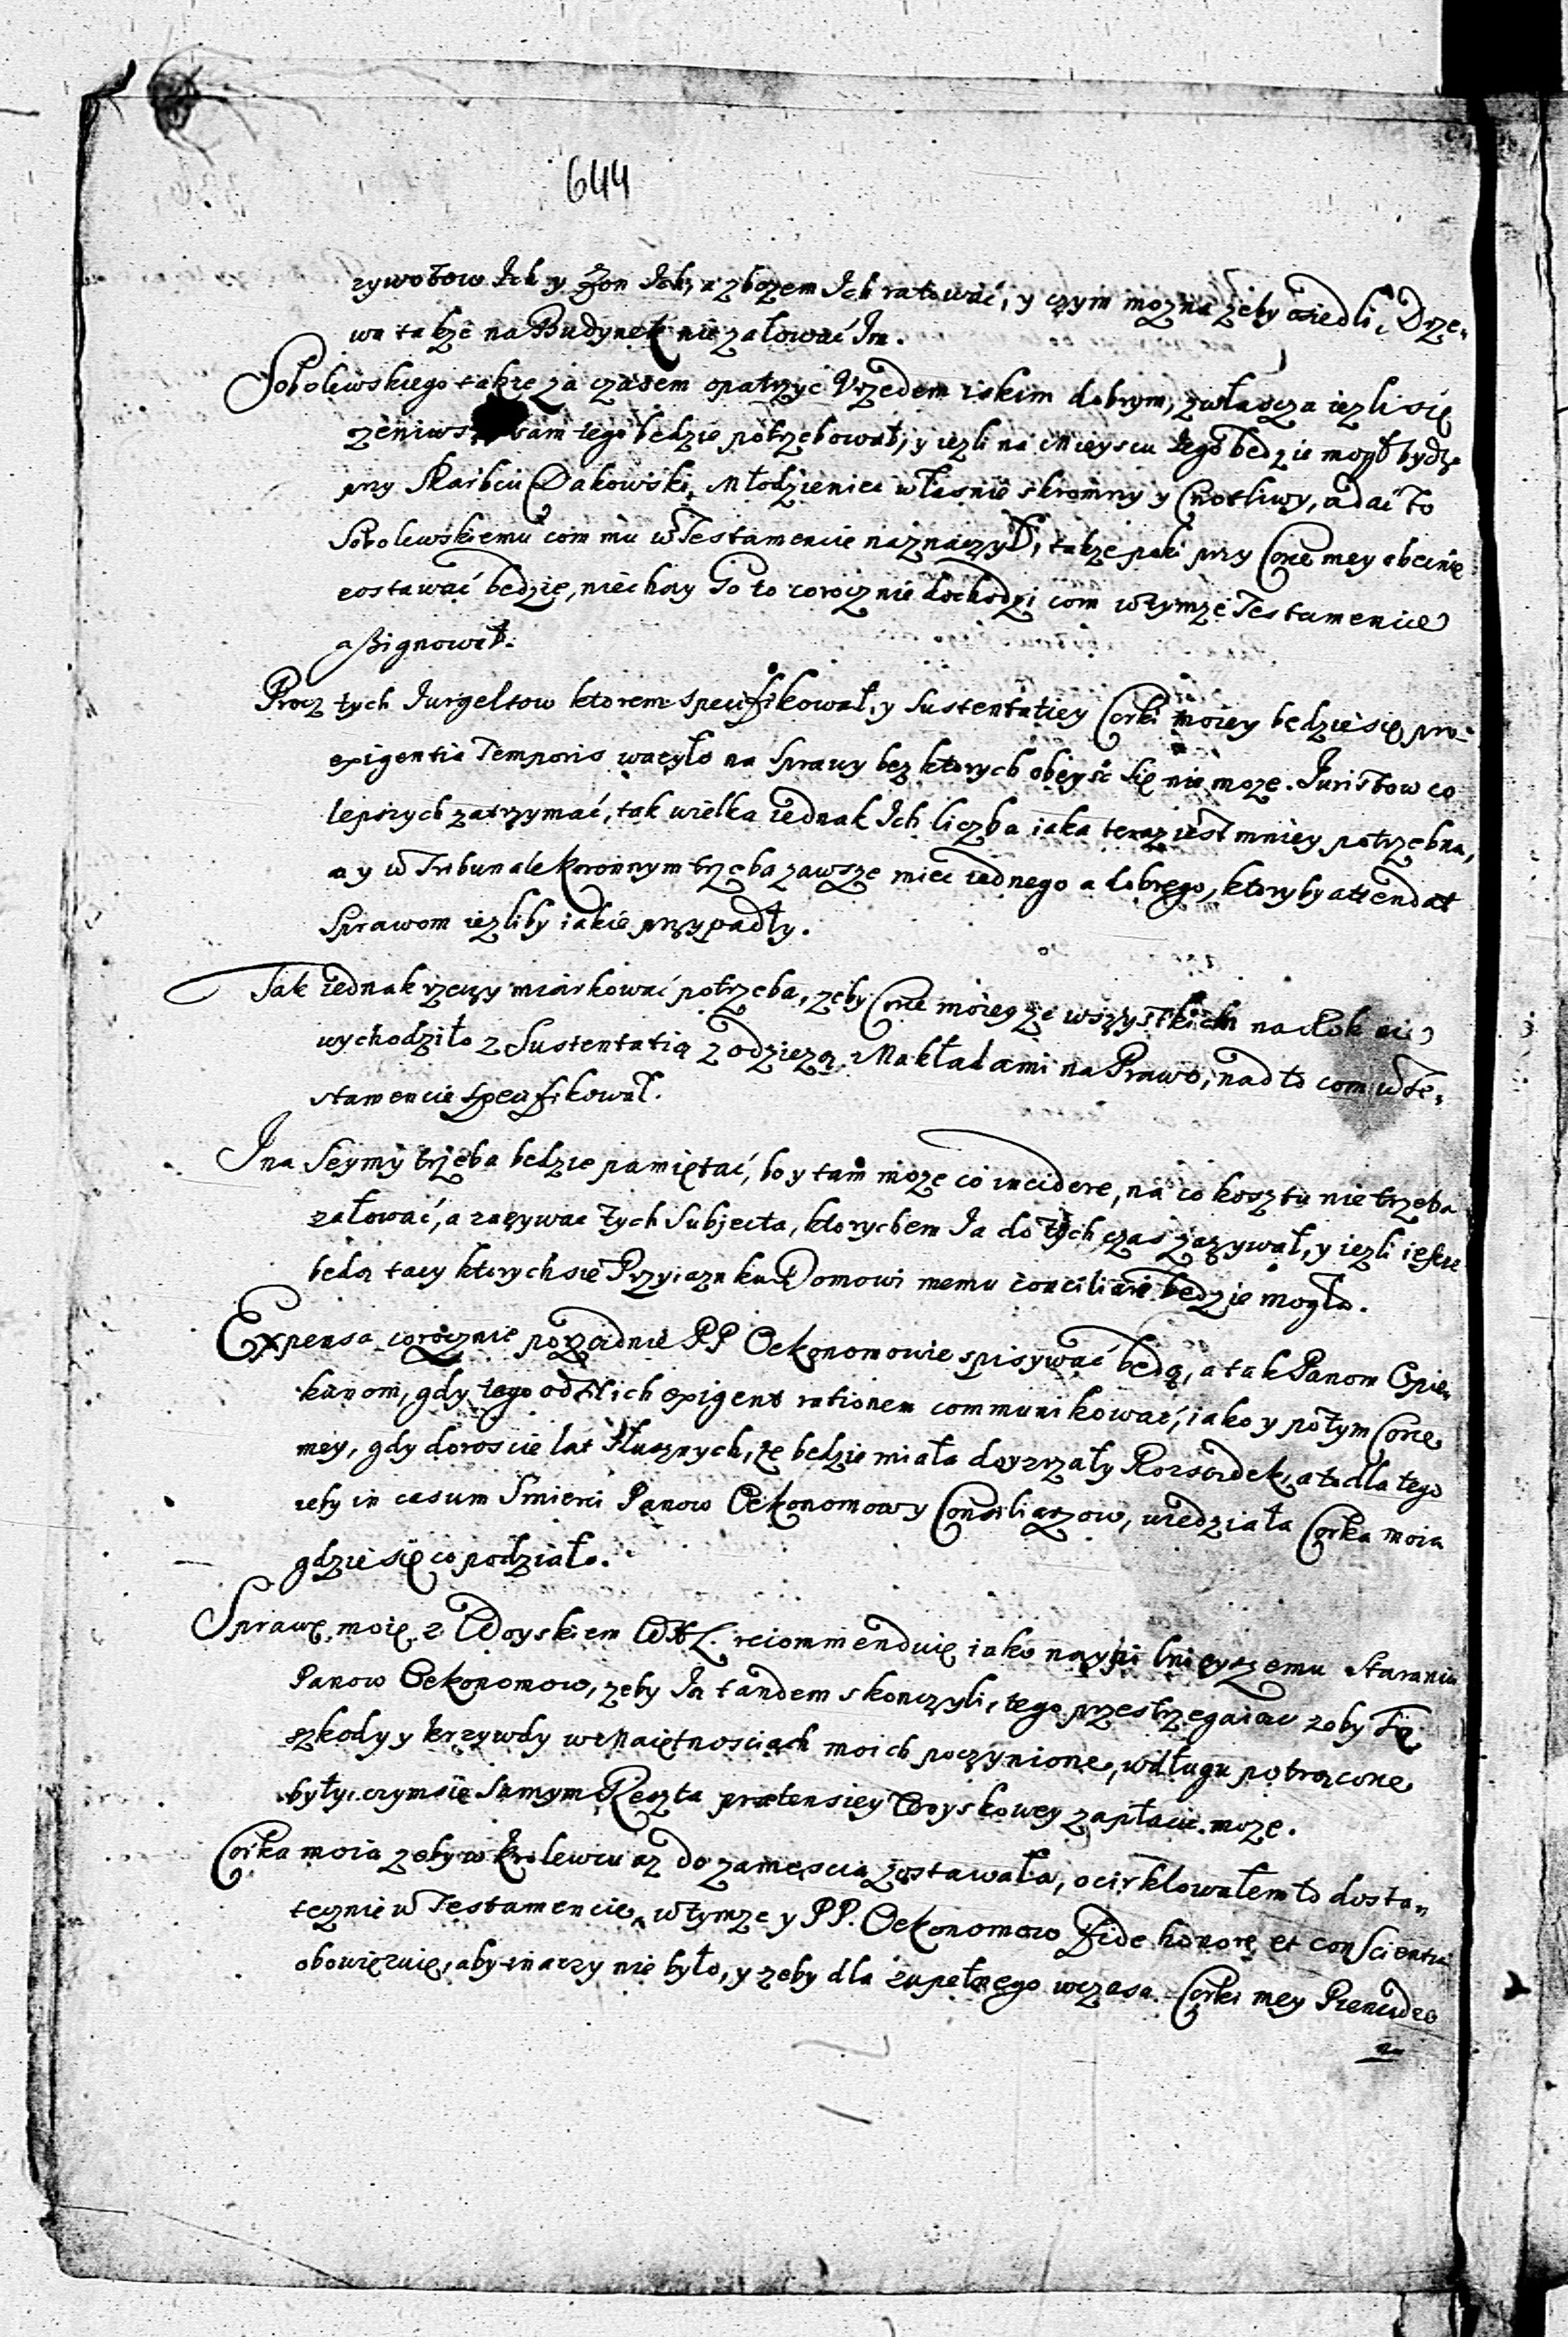 644
zywotow Ich y Zon Ich, a zbozem Ich ratować, y czym mozna żeby osiedli, Drze,
wa także na Budynek nie załować Im.
Sobolewskiego także za czasem opatrzyc Vrzędem iakim dobrym, zwłascza iezli się
ożeniws sam tego bedzie potrzebował, y iezli na mieyscu tego bedzie mogł bydz
przy Skarbcu Dakowski, Młodzieniec własnie skromny y Cnotliwy, a dać to
Sobolewskiemu com mu w Testamencie naznaczył, także poki przy Corce mey obecnie
zostawać bedzie, niechay Go to corocznie dochodzi com w tymze Testamencie
aßignował.
Procz tych Iurgeltow ktorem specifikował, y Sustentatiey Corki moiey bedzie się pro
exigentia Temporis wazyło na Sprawy bez ktorych obeyść się nie moze. Iuristow co
lepszych zatrzymać, tak wielka iednak Ich liczba iaka teraz iest mniey potrzebna,
a y w Tribunale Koronnym trzeba zawsze miec iednego a dobrego, ktoryby attendat
Sprawom iezliby iakie przypadły.
Tak iednak rzeczy miarkować potrzeba, zeby Corce moiey ze wszystkich na Rok nie
wychodziło z Sustentatią z odzieżą, z Nakładami na Prawo, nad to com w Te,
stamencie specifikował.
I na Seymy trzeba bedzie pamiętać, bo y tam moze co incidere, na co kosztu nie trzeba
załować, a zazywac tych Subjecta, ktorychem Ia do tych czas zazywał, y iezli ieszcze
będą tacy ktorych sie Przyiazn ku Domowi memu conciliare bedzie mogła.
Expensa corocznie porzadnie PP Oekonomowie spisywać będą, a tak Panom Opie,
kunom, gdy tego od Nich exigent rationem communikować, iako y potym Corce
mey, gdy doroscie lat słusznych, że bedzie miała doyzrzały Rozsądek, a to dla tego
zeby in casum Smierci Panow Oekonomow y Consiliarzow, wiedziała Corka moia
gdzie się co podziało.
Sprawę moię z Woyskiem WXL. recommenduię iako naypilnieyszemu Staraniu
Panow Oekonomow, zeby Ia tandem skonczyli, tego przestrzegaiac zeby Te
szkody y krzywdy w Maiętnosciach moich poczynione, w długu potrącone
były, czym sie samym Reszta prætensiey Woyskowey zapłacic moze.
Corka moia zeby w Krolewcu az do zamęscia zostawała, ocirklowałem to dosta,
tecznie w Testamencie, w tymze y PP. Oekonomow Fide honore et conscientia
obowięzuię, aby inaczy nie było, y zeby dla zupełnego wczasu Corki mey Pieniądze